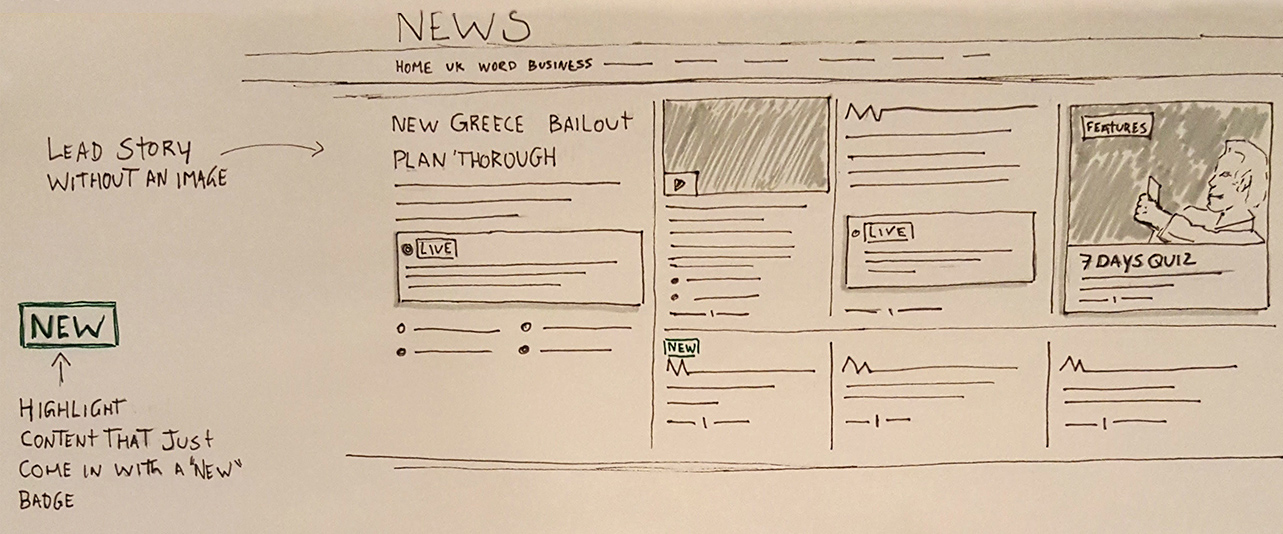 NEWS
HOME UK WORD BUSINESS
LEAD STORY
WITHOUT AN IMAGE
NEW GREECE BAILOUT
PLAN 'THOROUGH
LIVE
LIVE
FEATURES
7 DAYS QUIZ
NEW
NEW
HIGHLIGHT
CONTENT THAT JUST
COME IN WITH A "NEW"
BADGE